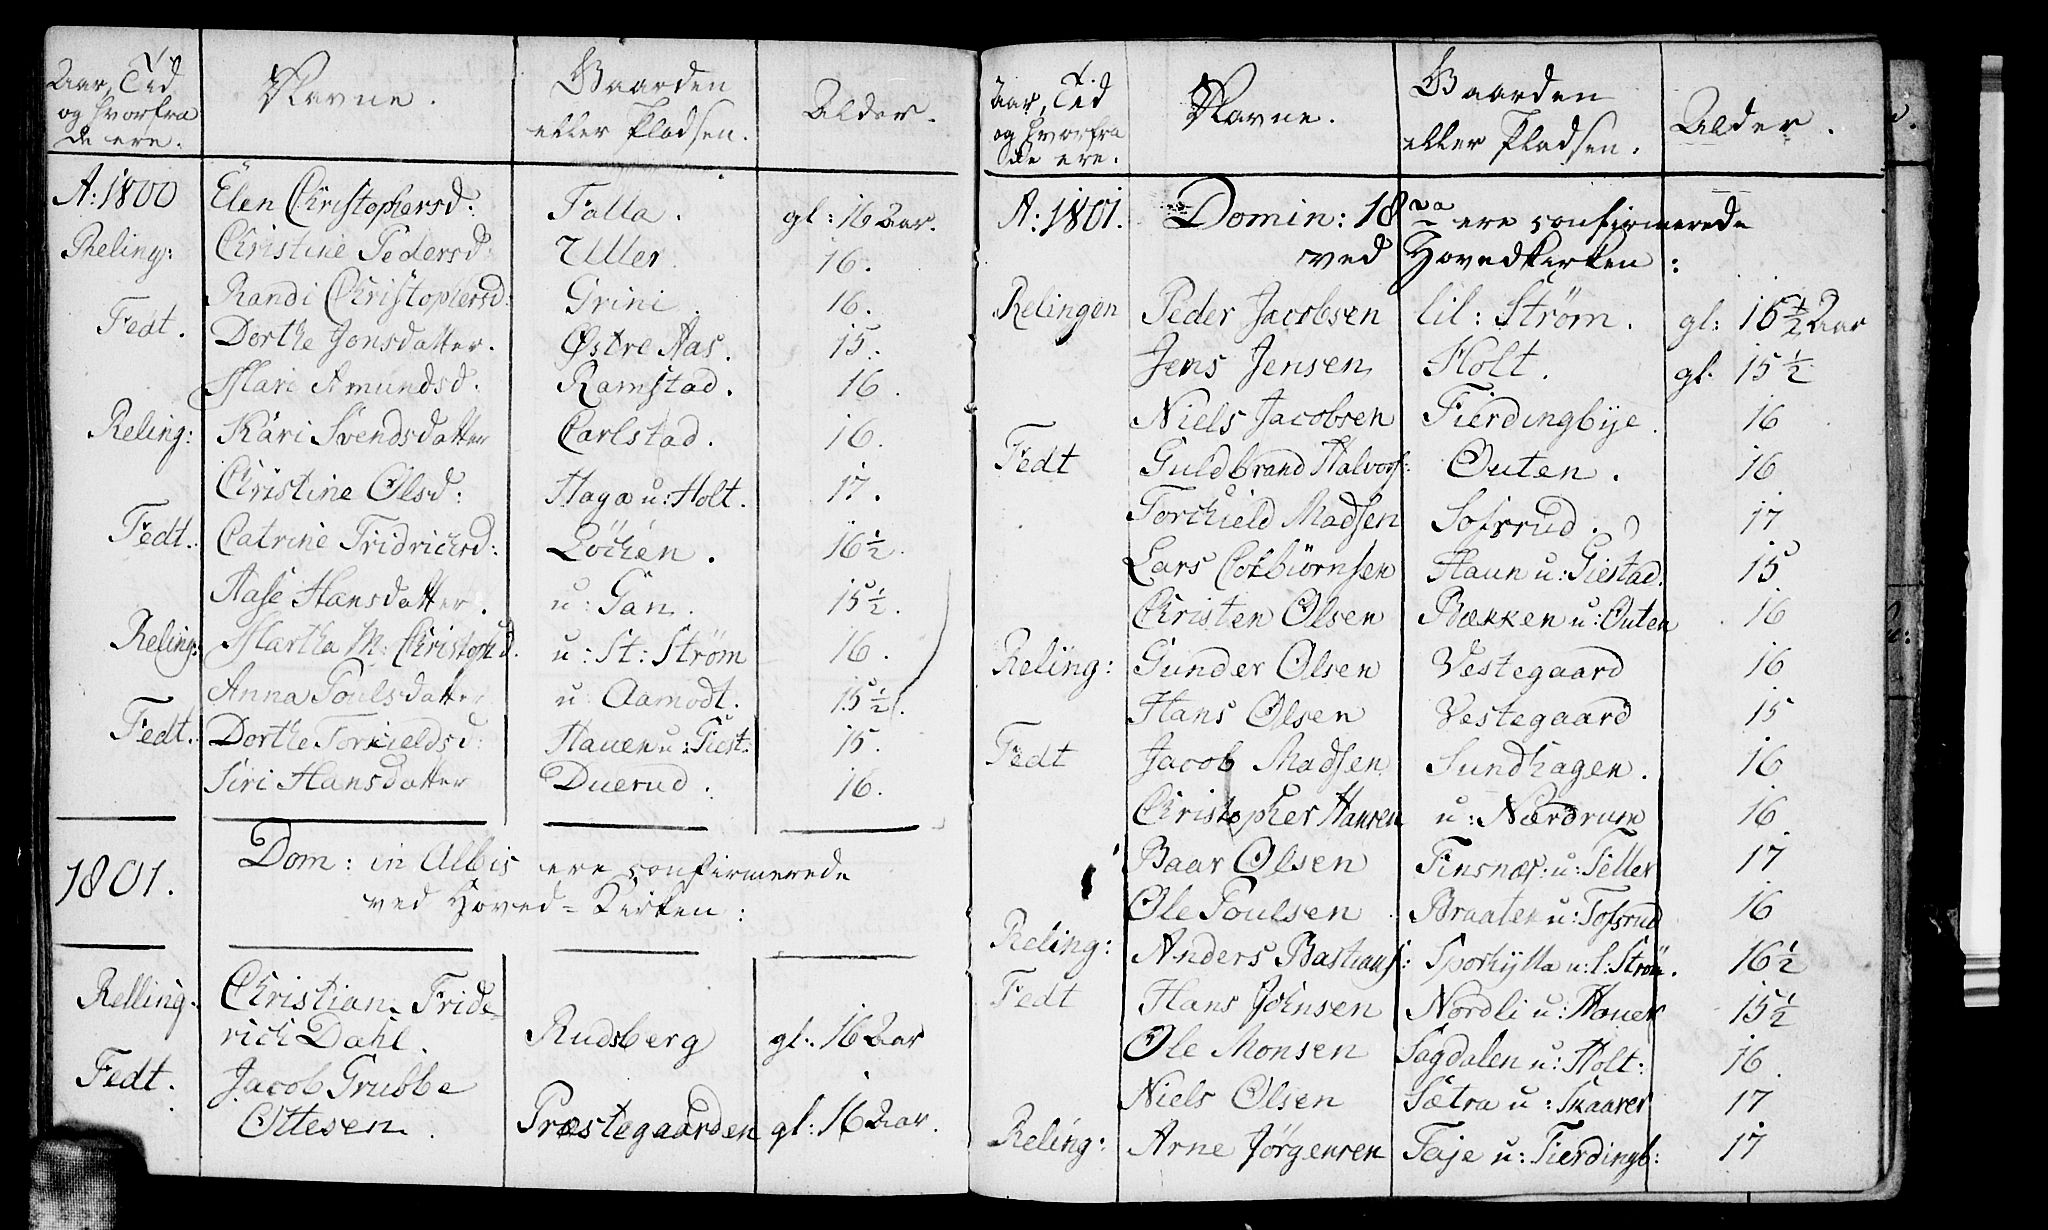 Aar, Tid og hvorfra de ere. Navne. Gaarden eller Pladsen. Alder.
A: 1800 Elen Christophersd: Falla. gl: 16 Aar.
Reling: Christine Pedersd: Uller 16.
Randi Christophersd: Grini 16.
Fedt. Dorthe Jonsdatter. Østre Aas. 15.
Mari Amundsd. Ramstad. 16.
Reling: Kari Svendsdatter Carlstad. 16.
Christine Olsd: Haga u: Holt. 17.
Fedt. Catrine Fridrichsd: Löchen. 16½.
Aase Hansdatter. u: Gan. 15½.
Reling: Martha M: Christophd. u: St: Strøm 16.
Anna Poulsdatter u: Aamodt. 15½.
Fedt. Dorthe Torkieldsd: Hauen u: Giest: 15.
Siri Hansdatter Duerud. 16.
1801. Dom: in Albis ere confirmerede
ved Hoved-Kirken:
Relling. Christian Fride-
rich Dahl. Rudsberg gl: 16 Aar
Fedt. Jacob Grubbe
Ottesen. Præstegaarden gl: 16 Aar.
Aar, Tid og hvorfra de ere. Navne. Gaarden eller Pladsen. Alder.
A: 1801. Domin: 18va ere confirmerede
ved Hovedkirken:
Relingen Peder Jacobsen lil: Strøm. gl: 15½ Aar
Jens Jensen Holt. gl. 15½
Niels Jacobsen Fierdingbye. 16
Fedt Guldbrand Halvors: Outen. 16
Torchield Madsen Tofsrud. 17
Lars Colbiørnsen Haun u: Giestad. 15
Christen Olsen Bækken u: Outen 16
Reling: Gunder Olsen Vestegaard 16
Hans Olsen Vestegaard 15
Fedt Jacob Madsen Sundhagen. 16
Christopher Hansen u: Nærdrum 16.
Baar Olsen Finsnæs: u: Teller 17
Ole Poulsen Braaten u: Tofsrud 16
Reling: Anders Bastians: u: l: Strøm. 16½
Fedt Hans Johnsen Nordli u: Hauer 15½
Ole Monsen Sagdalen u: Holt: 16.
Niels Olsen Sætra u: Skaarer 17
Reling: Arne Jørgensen Taje u: Fierdingb: 17